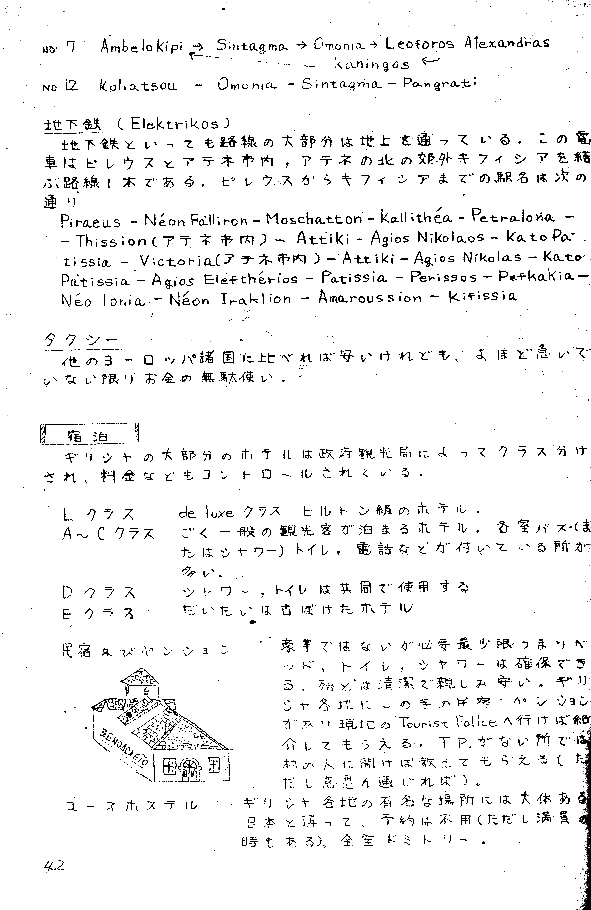 NO 7 Ambelokipi → Sintagma → Omonia → Leoforos Alexandras
Kaningos
NO 12 Koliatsou - Omonia - Sintagma - Pangrati
地下鉄 (Elektrikos)
地下鉄といっても路線の大部分は地上を通っている. この電
車はピレウスとアテネ市内, アテネの北の郊外キフィシアを結
ぶ路線1本である. ピレウスからキフィシアまでの駅名は次の
通り
Piraeus - Néon Falliron - Moschatton - Kallithéa - Petralona -
- Thission (アテネ市内) - Attiki - Agios Nikolaos - Kato Pa
tissia - Victoria (アテネ市内) - Attiki - Agios Nikolas - Kato
Patissia - Agios Elefthérios - Patissia - Perissos - Pefkakia -
Néo Ionia - Néon Iraklion - Amaroussion - Kifissia
タクシー
他のヨーロッパ諸国に比べれば安いけれども、よほど急いで
いない限りお金の無駄使い.
宿泊
ギリシャの大部分のホテルは政府観光局によってクラス分け
され、料金などもコントロールされている.
L クラス de luxe クラス ヒルトン級のホテル.
A～C クラス ごく一般の観光客が泊まるホテル. 各室バス・(ま
たはシャワー) トイレ, 電話などが付いている所が
多い.
D クラス シャワー, トイレは共同で使用する
E クラス だいたいは古ぼけたホテル
民宿及びペンション 豪華ではないが必要最少限つまりベ
ッド, トイレ, シャワーは確保でき
る, 殆どは清潔で親しみ安い. ギリ
シャ各地にこの手の民宿・ペンション
があり現地の Tourist Police へ行けば紹
介してもらえる. T.P. がない所では
村の人に聞けば教えてもらえる (た
だし意思が通じれば).
ΞΕΝΟΔΟΧΕΙΟ
ユースホステル ギリシャ各地の有名な場所には大体ある
日本と違って、予約は不用 (ただし満員の
時もある). 全室ドミトリー.
42